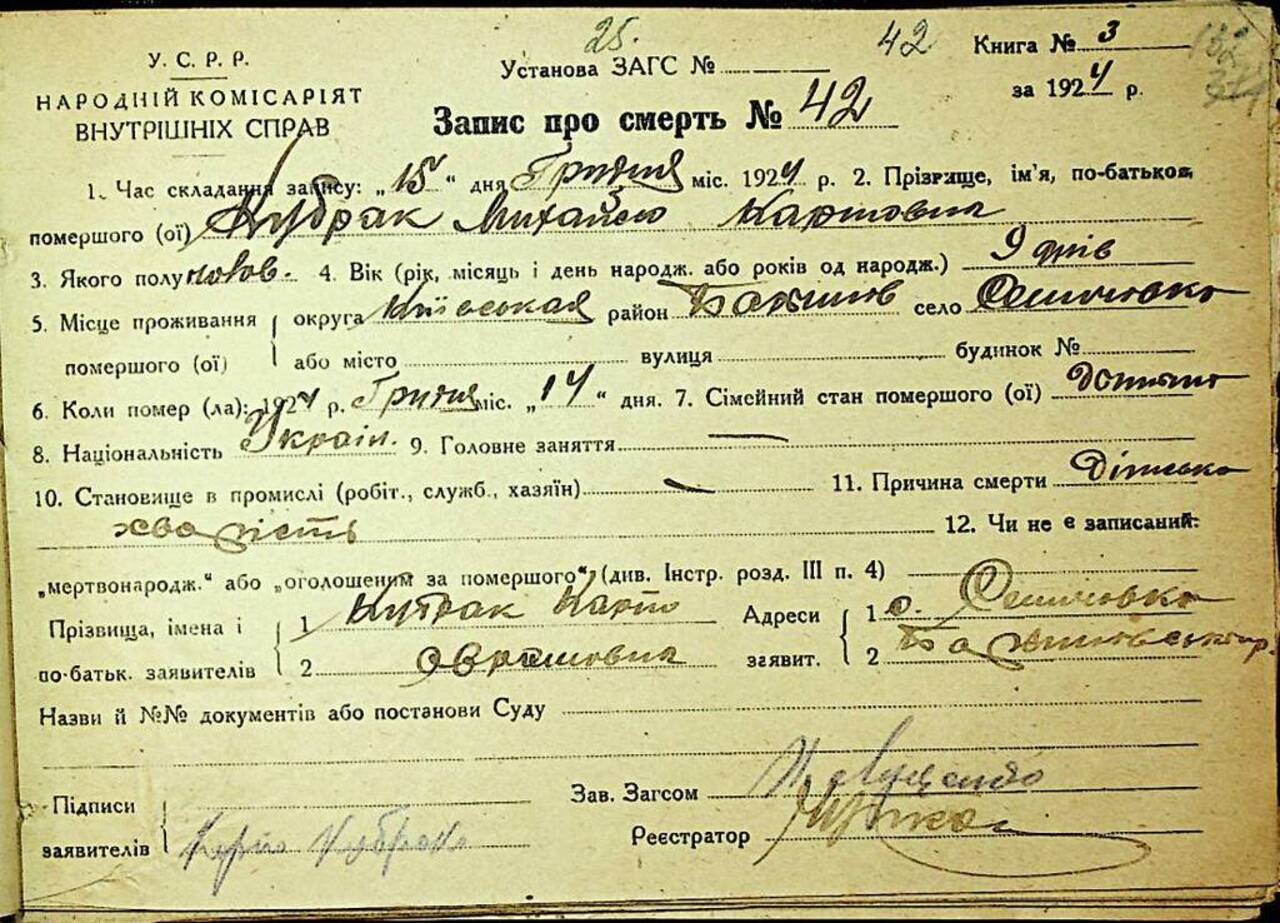 25. 42 Книга № 3
У. С. Р. Р. Установа ЗАГС №
НАРОДНІЙ КОМІСАРІЯТ за 1924 р.
ВНУТРІШНІХ СПРАВ Запис про смерть № 42
1. Час складання запису: „15“ дня Грудня міс. 1924 р. 2. Прізвище, ім'я, по-батькові
помершого (ої) Кубрак Михайло Карпович
3. Якого полу чолов. 4. Вік (рік, місяць і день народж. або років од народж.) 9 днів
5. Місце проживання округа Київськая район село
помершого (ої) або місто вулиця будинок №
6. Коли помер (ла): 1924 р. Грудня міс. „14“ дня. 7. Сімейний стан помершого (ої)
8. Національність Україн. 9. Головне заняття —
10. Становище в промислі (робіт., служб., хазяїн) — 11. Причина смерти Дітська
хворість 12. Чи не є записаний:
„мертвонародж.“ або „оголошеним за помершого“ (див. Інстр. розд. III п. 4)
Прізвища, імена і 1 Кубрак Карпо Адреси 1 с.
по-батьк. заявителів 2 заявит. 2
Назви й №№ документів або постанови Суду
Підписи Зав. Загсом
заявителів Карпо Кубрак Реєстратор